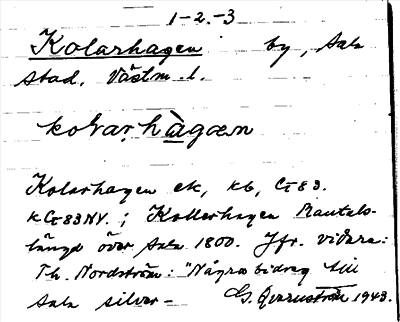 1-2.-3
Kolarhagen by, Sala
stad. Västm. l.
kolarhàgæn
Kolarhagen ek, kb, Ct 83.
k Ct 83 NV.; Kollerhagen Mantals-
längd över Sala 1800. Jfr. vidare:
Th. Nordström: "Några bidrag till
Sala silver- G. Qvarnström 1943.